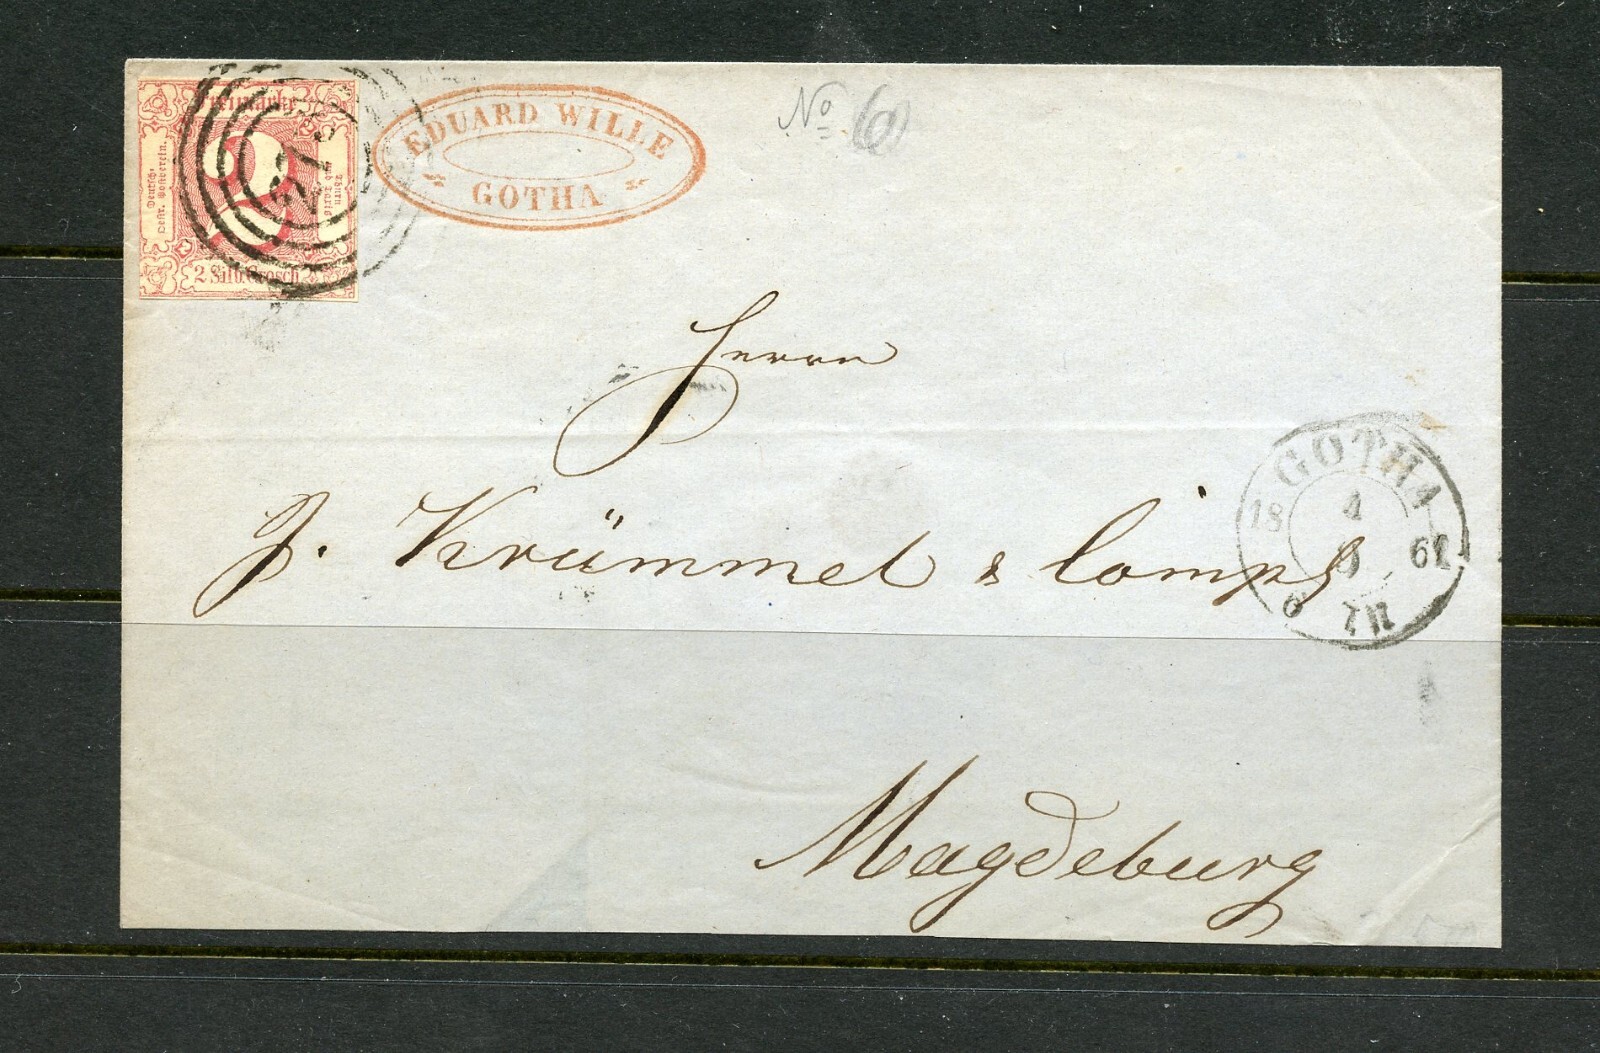 Freimarke
Deutsch-
Oestr. Postverein.
Thurn
und Taxis
2 Silb. Grosch
273
EDUARD WILLE
GOTHA
No 60
Herrn
J. Krümmel & Comp
Magdeburg
GOTHA
18 4 61